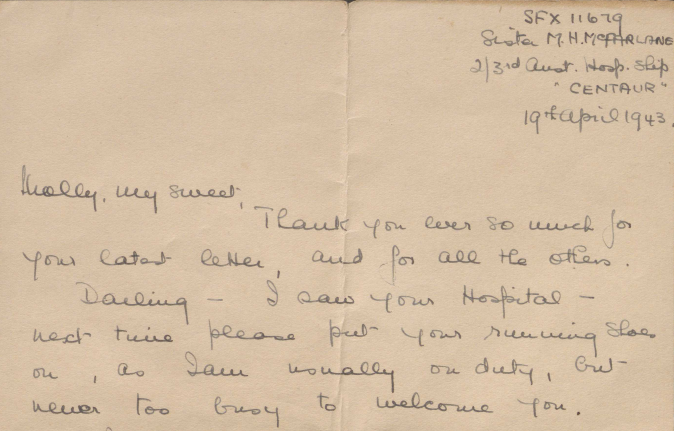 SFX 11679
Sister M.H. McFARLANE
2/3rd Aust. Hosp. Ship
"CENTAUR"
19th April 1943.
Molly, my sweet,
Thank you ever so much for
your latest letter, and for all the others.
Darling – I saw your Hospital –
next time please put your running shoes
on, as I am usually on duty, but
never too busy to welcome you.